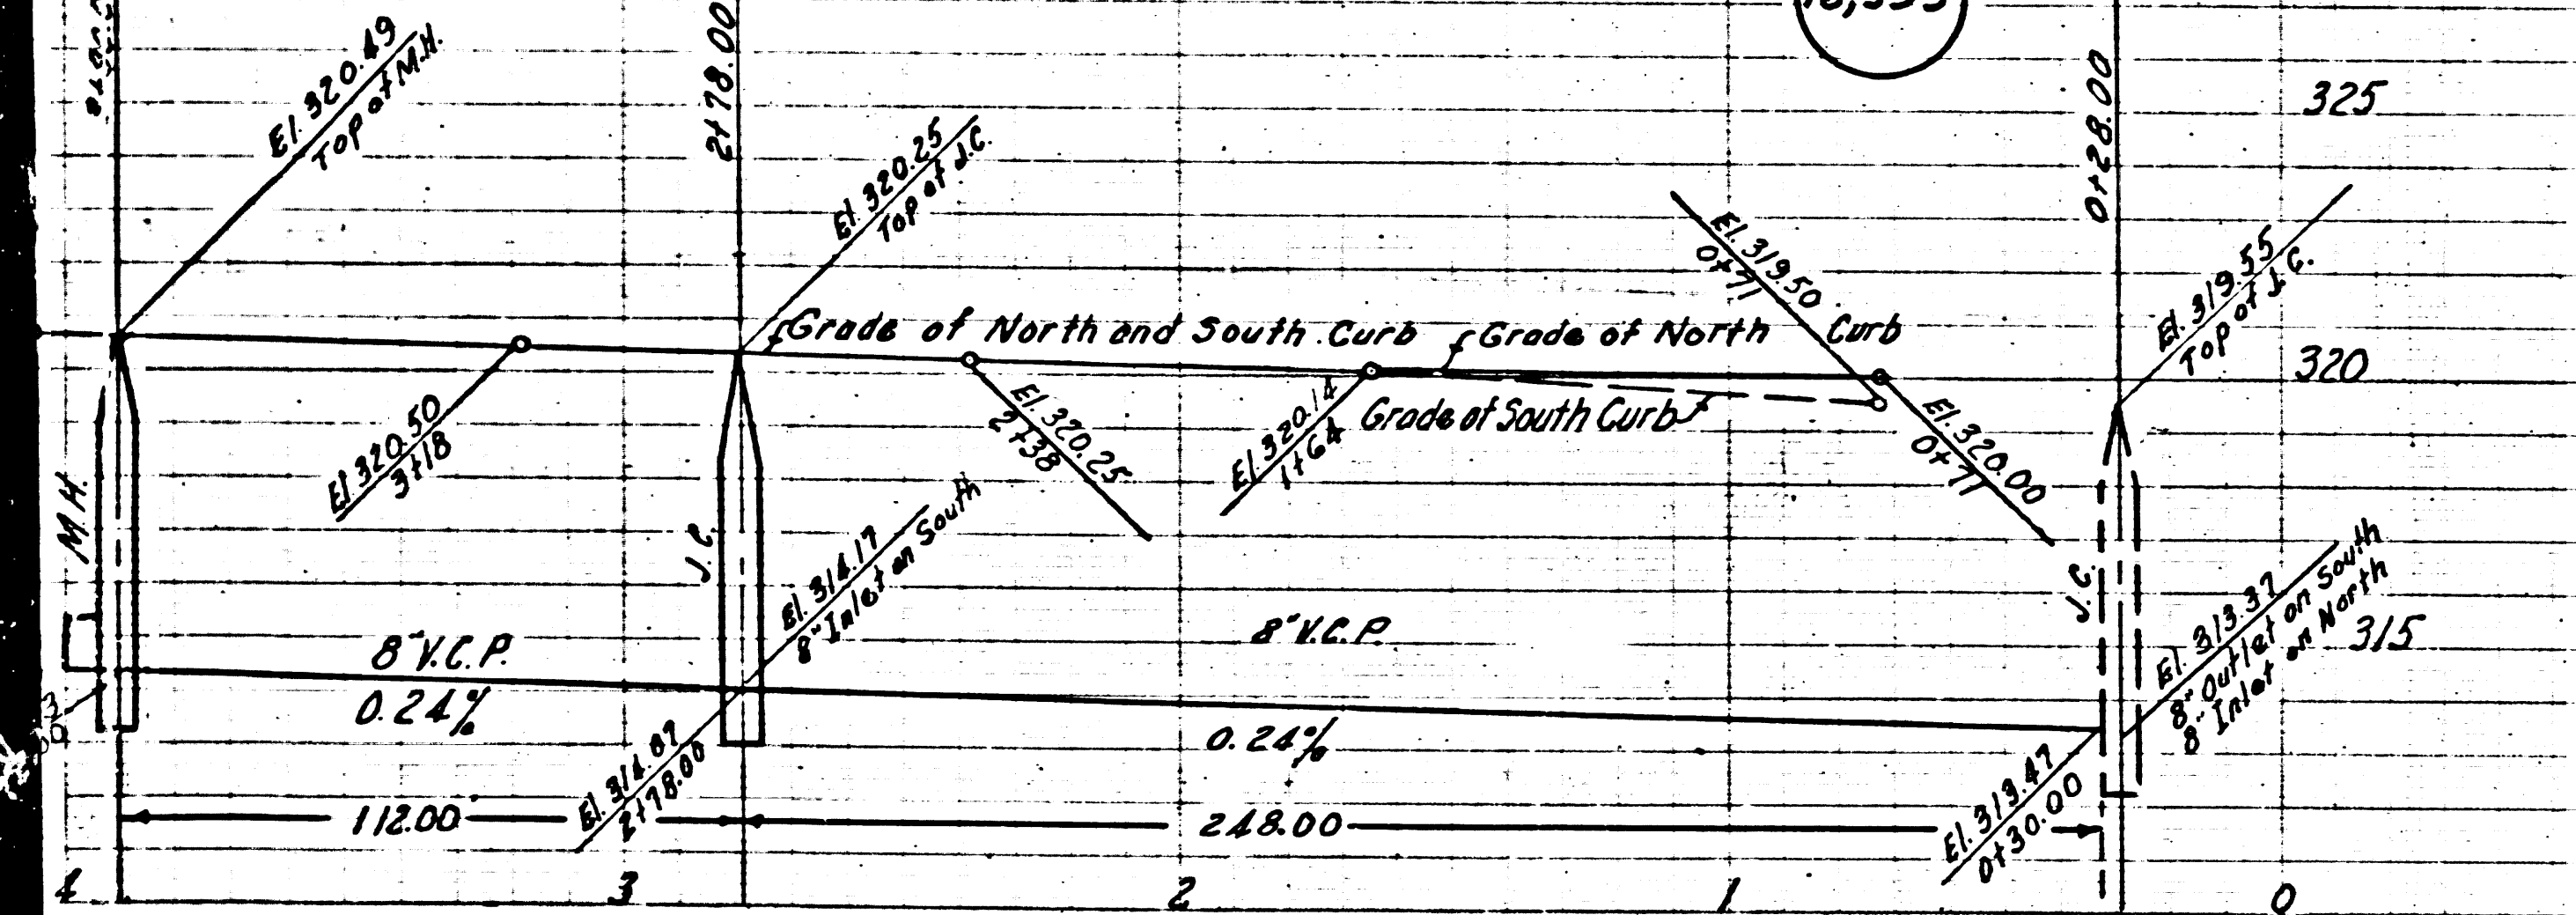 El. 320.49
Top of M.H.
2+78.00
El. 320.25
Top of J.C.
0+28.00
325
El. 319.50
0+71
El. 319.55
Top of J.C.
Grade of North and South Curb
Grade of North Curb
320
El. 320.50
3+18
El. 320.25
2+38
El. 320.14
1+64
Grade of South Curb
El. 320.00
0+71
M.H.
J.C.
El. 314.17
8" Inlet on South
J.C.
El. 313.37
8" Outlet on South
8" Inlet on North
315
8" V.C.P.
0.24%
8" V.C.P.
0.24%
El. 314.07
2+78.00
El. 313.47
0+30.00
112.00
248.00
4 3 2 1 0